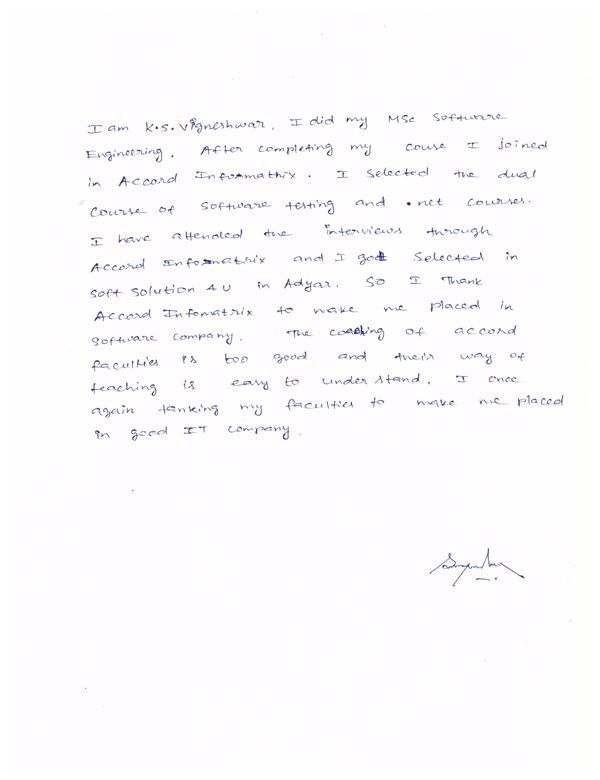 I am K.S. Vigneshwar, I did my MSc Software
Engineering. After completing my couse I joined
in Accord Informathix. I selected the dual
course of Software testing and .net courses.
I have attended the interviews through
Accord Infomatrix and I got Selected in
Soft Solution 4 U in Adyar. So I Thank
Accord Infomatrix to make me placed in
Software company. The coaching of accord
faculties is too good and their way of
teaching is easy to under stand. I once
again tanking my faculties to make me placed
in good IT company.